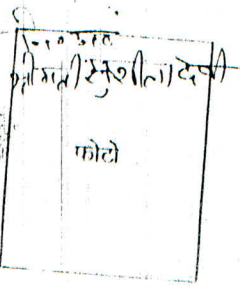 श्रीमती सुशीला देवी
फोटो